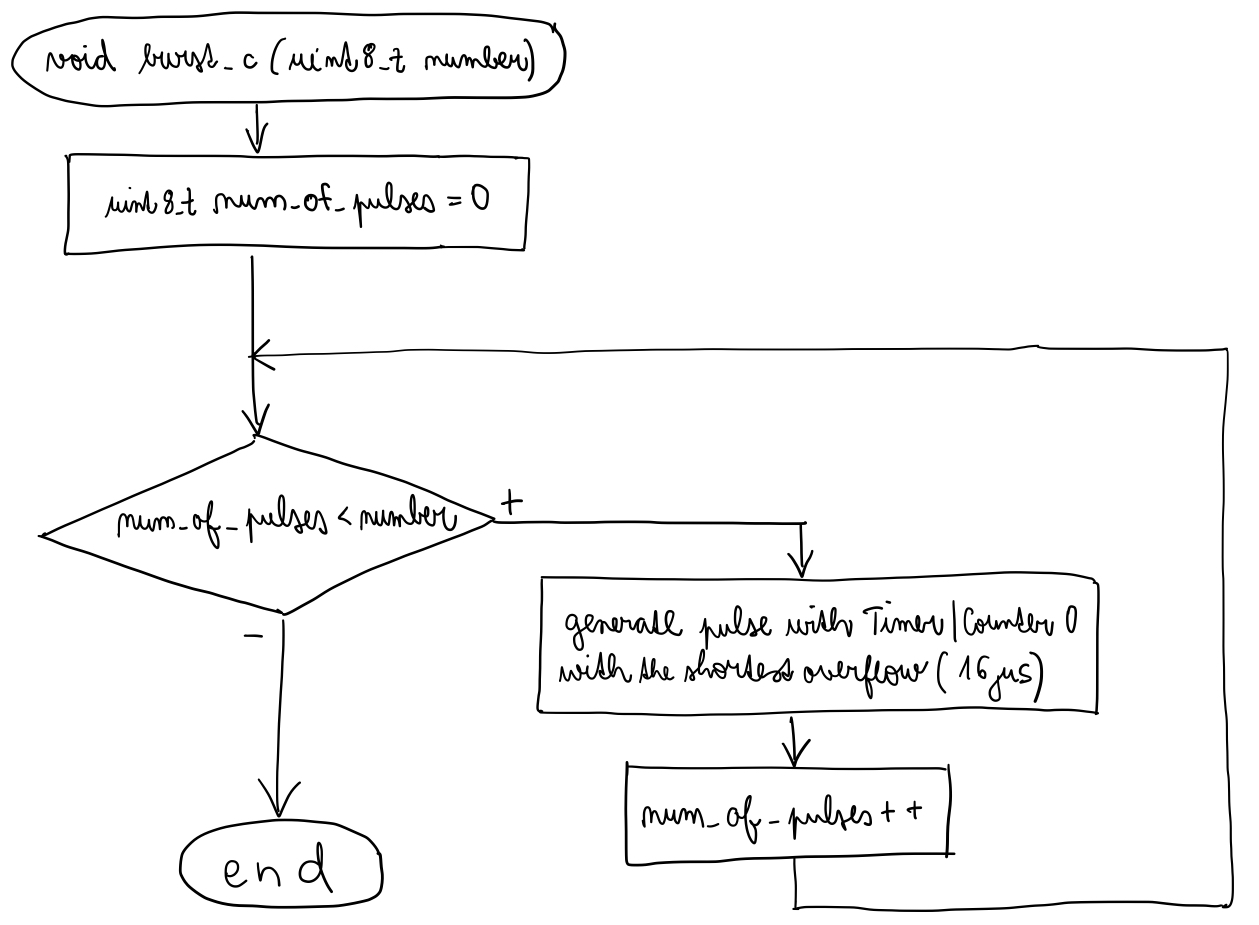 void burst_c (uint8_t number)
uint8_t num_of_pulses = 0
num_of_pulses < number
+
-
generate pulse with Timer/Counter 0
with the shortest overflow (16 µs)
num_of_pulses++
end